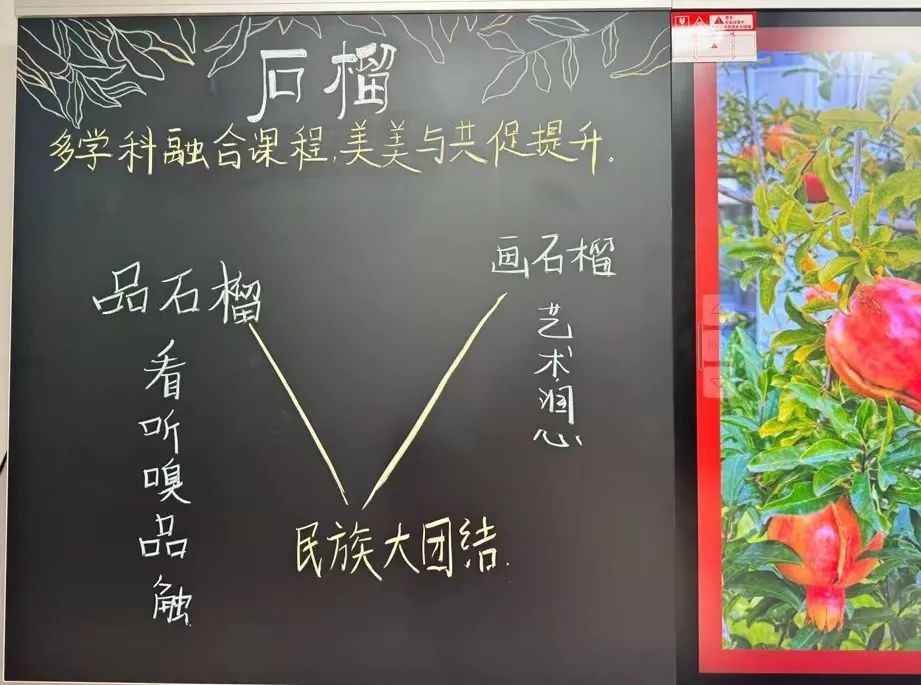 石榴
多学科融合课程,美美与共促提升。
品石榴
看
听
嗅
品
触
画石榴
艺
术
润
心
民族大团结.